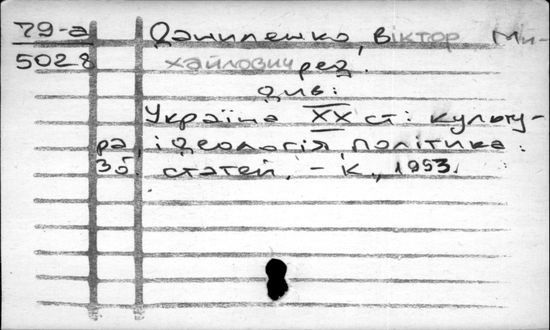 79-а Даниленко, Віктор Ми-
5028 хайлович ред.
див:
Україна XX ст: культу-
ра, ідеологія, політика:
Зб. статей, - К., 1993.